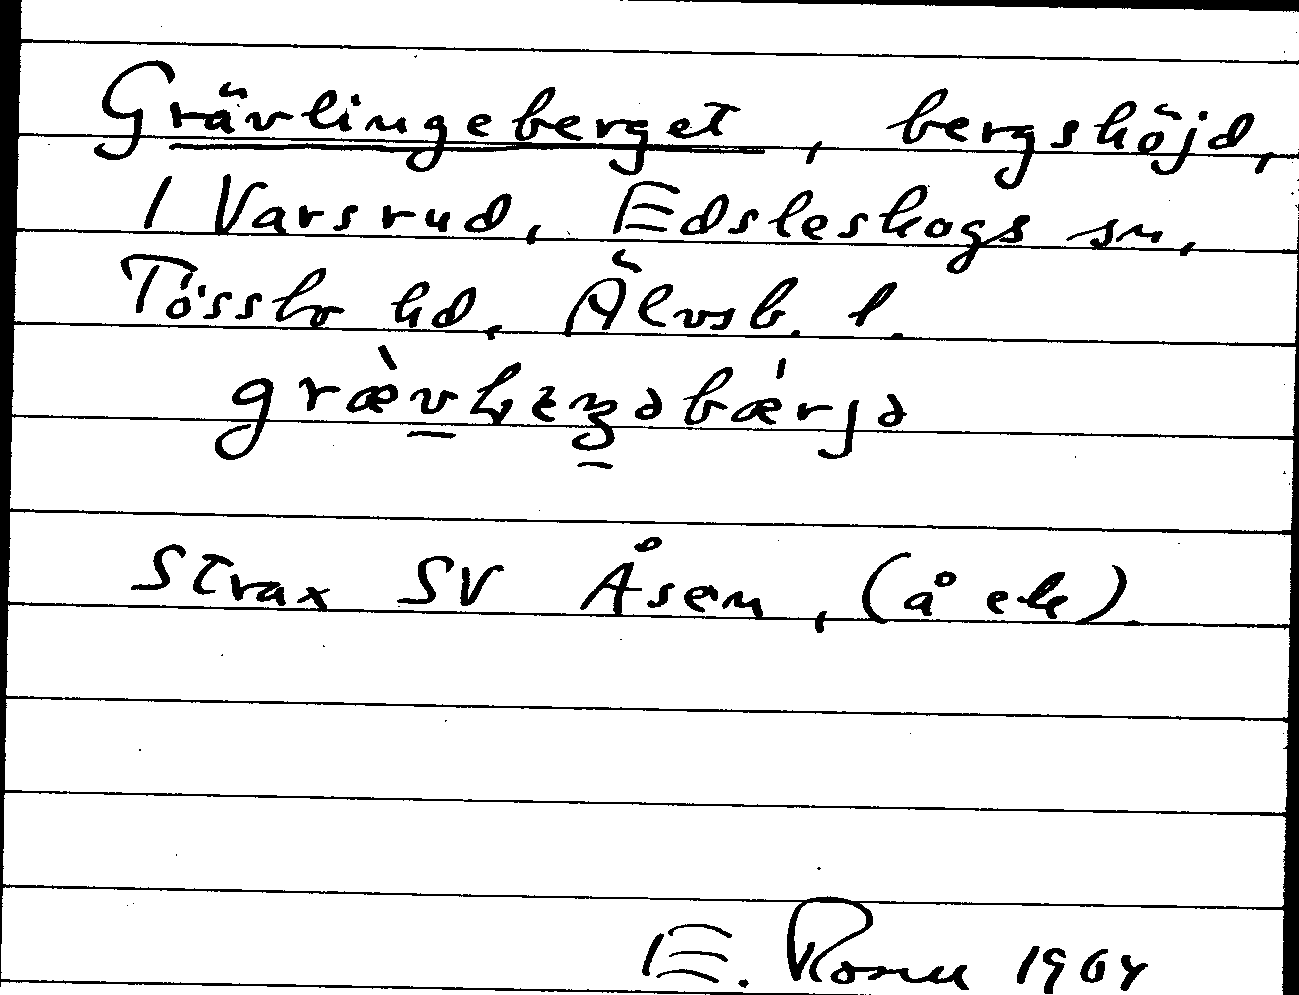 Grävlingeberget, bergshöjd,
i Varsrud, Edsleskogs sn,
Tössbo hd, Älvsb. l.
Strax SV Åsen, (å ek).
E. 1964